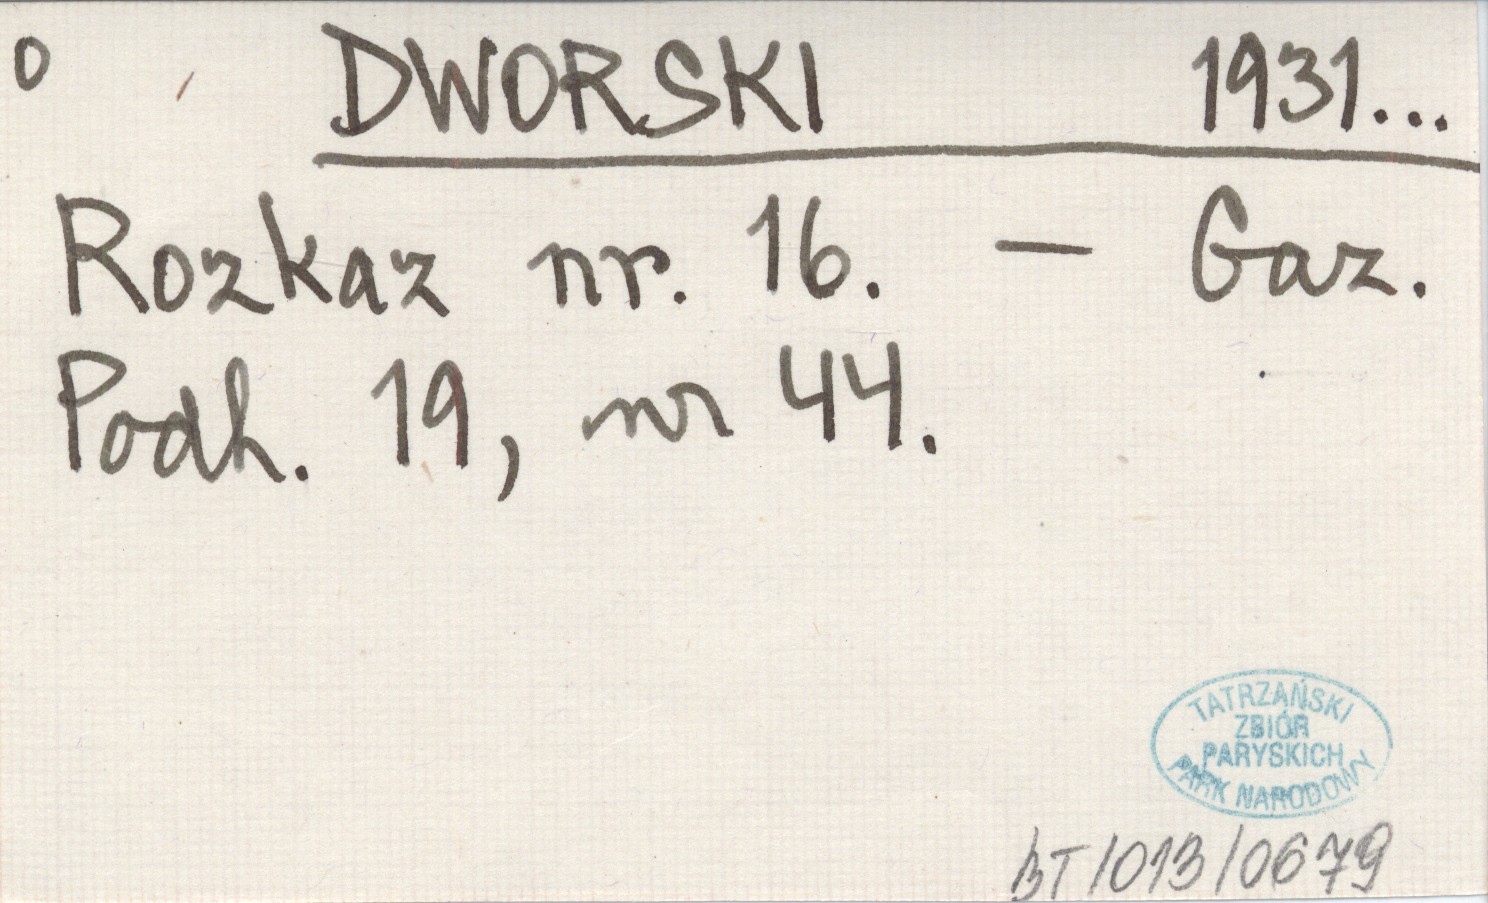 O DWORSKI 1931...
Rozkaz nr. 16. — Gaz.
Podh. 19, nr 44.
TATRZAŃSKI
ZBIÓR
PARYSKICH
PARK NARODOWY
BT/013/0679